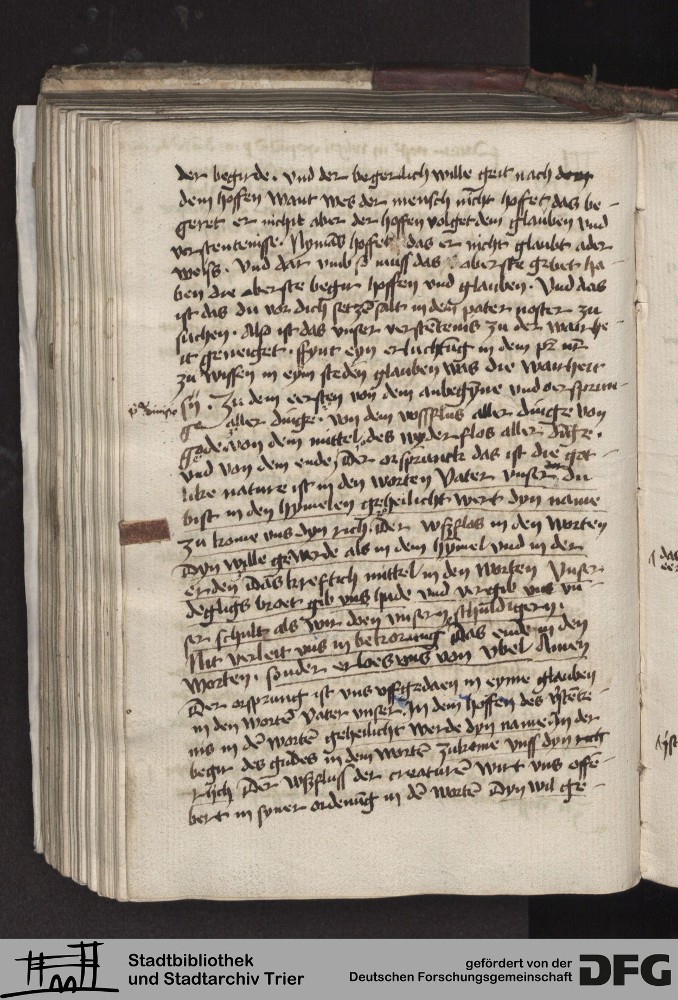 der begirde. vnd der begerlich wille geit nach
dem hoffen want wes der mensch nicht hoffet das be-
geret er nicht aber der hoffen volget dem glauben vnd
verstentenisse. Nymās hoffet das er nicht glaubt ader
weiss. Vnd dar vmb muss das aberste gebet ha-
ben die oberste begir hoffen vnd glauben. Vnd das
ist das du vor dich setzē salt in dem pater noster zu
suchen. Also ist das vnser verstētenis zu der warhe-
it geneiget. eyn erluchtūg in dem pr̄ nr̄
zu wissen in eym steden glauben was die warheit
sij. Zu dem eersten von dem anbegȳne vnd oersprun-
ge aller dinge. von dem vssfluss aller dinge von
gode. von dem mittel des wyderflos aller dīge.
vnd von dem ende. Der orspranck das ist die got-
liche nature ist in den worten Vater vnser du
bist in den hymelen geheilicht wert dyn name
zu kome vns dyn rich. Der vszflos in den worten
Dyn wille gewerde als in dem hymel vnd in der
erden Das krefftich mittel in den worten Vnser
degligs broet gib vns hude vnd vergib vns vn-
ser schult als wir doen vnsern schuldigern.
Nit verleit vns in bekorung Das ende in den
worten. sonder erloes vns von vbel Amen
Der orsprung ist vns vffgedaen in eyme glauben
in den wortē Vater vnser. In dem hoffen des
in dē wortē geheilicht werde dyn name. In der
begir des gudes in dem wortē zukome vnss dyn rich
Der vszfluss der creaturē wirt vns offē-
bert in syner ordenūg in dē wortē Dyn wil ge-
Stadtbibliothek
und Stadtarchiv Trier
gefördert von der
Deutschen Forschungsgemeinschaft
DFG